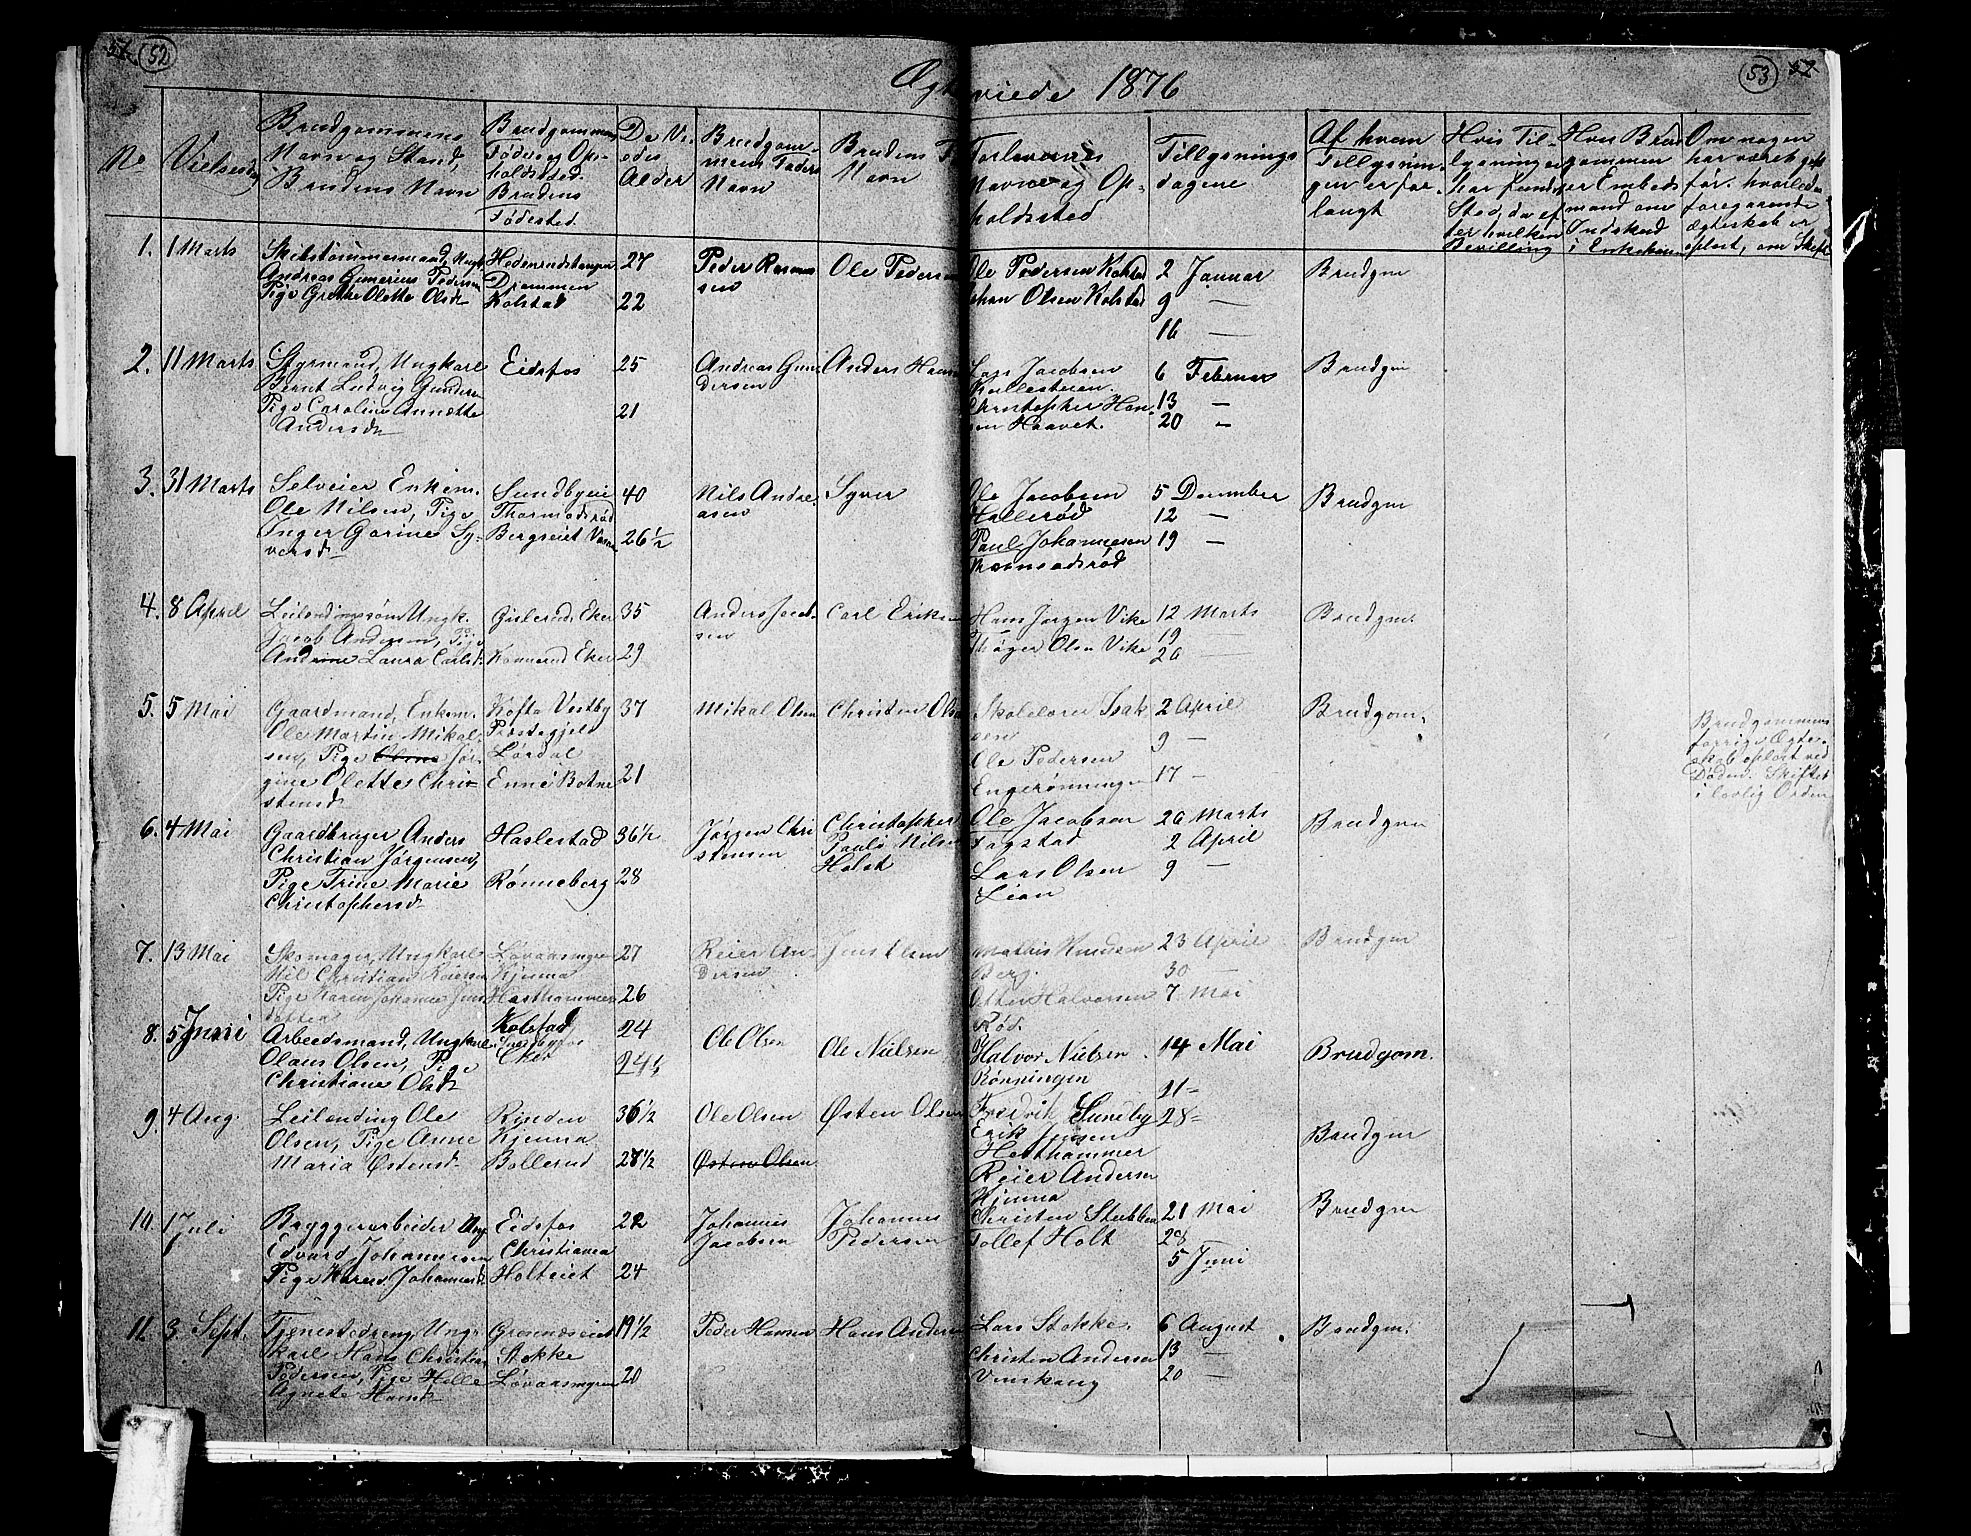 52
53
Ægteviede 1876
No
Vielsesdag
Brudgommens
Navn og Stand,
Brudens Navn
Brudgommens
Føde og Op-
holdssted.
Brudens
Fødested.
De Vi-
edes
Alder
Brudgom-
mens Faders
Navn
Brudens F
Navn
Forlovernes
Navne og Op-
holdssted
Tillysnings
dagene
Af hvem
Tillysnin-
gen er for-
langt
Hvis Til-
lysningen
har fundet
Sted, da ef-
ter hvilken
Bevilling
Hvis Brud
gommen
er Embeds
mand om
Indskud
i Enkekassen
Om nogen
har været gift
før. hvorledes
foregaaende
Ægteskab er
opløst, om Skifte
1. 1 Marts
Andreas Gumerius Pedersen
Pige Grethe Olette Olsd
Drammen
Kolstad
27
22
Peder Rasmus
sen
Ole Pedersen
Ole Pedersen Kolstad
Johan Olsen Kolstad
2 Januar
9 —
16 —
Brudgm
2. 11 Marts
Styrmand, Ungkarl
Bernt Ludvig Gundersen
Pige Caroline Annette
Andersd
Eidsfos
25
21
Andreas Gun
dersen
Anders Hansen
Lars Jacobsen
Christopher Han-
sen Haavet.
6 Februar
13 —
20 —
Brudgm
3. 31 Marts
Selveier Enkem.
Ole Nilsen, Pige
Inger Gorine Sy-
versd
Sundbyeie
Thormodsrød
Bergseiet
40
26½
Nils Andre
asen
Syver
Ole Jacobsen
Hallerød
Paul Johannesen
5 December
12 —
19 —
Brudgm
4. 8 April
Ungk.
Jacob Andersen, Pige
Andrine Laura Carlsd.
Eker
Eker
35
29
Anders Jacob-
sen
Carl Eriksen
Hans Jørgen Vike
Olsen Vike
12 Marts
19 —
26
Brudgm.
5. 5 Mai
Gaardmand, Enkem.
Ole Martin Mikal-
sen, Pige Olene Jør-
gine Olette Chri-
stensd
Vestby
Præstegjeld
Lørdal
Enne Botne
37
21
Mikal Olsen
Christen Olsen
Skolelærer Isak
sen
Ole Pedersen
Engerønningen
2 April
9 —
17 —
Brudgom.
Brudgommens
forrige Ægte-
skab opløst ved
Døden. Skiftet
i lovlig Orden
6. 4 Mai
Gaardbruger Anders
Christian Jørgensen,
Pige Trine Marie
Christophersd
Haslestad
Rønneberg
36½
28
Jørgen Chri
stensen
Christopher
Nilsen
Holst
Ole Jacobsen
Fagstad
Lars Olsen
Lian
26 Marts
2 April
9 —
Brudgm
7. 13 Mai
Skomager, Ungkarl
Nil Christian Reiersen
Pige Karen Johanne Jens
datter
Løvaasmyren
Kjenna
Hesthammer
27
26
Reier An-
dersen
Jens Olsen
Mathis Knudsen
Berg.
Otter Halvorsen
Rød.
23 April
30 —
7 Mai
Brudgm
8. 5 Juni
Arbeidsmand, Ungkarl
Olaus Olsen, Pige
Christiane Olsd
Kolstad,
Eker
24
24½
Ole Olsen
Ole Nielsen
Halvor Nielsen
Rønningen
Fredrik Sundby
14 Mai
21 —
28 —
Brudgom.
9. 4 Aug
Leilending Ole
Olsen, Pige Anne
Maria Østensd
Rinden
Kjenna
Bollerud
36½
28½
Ole Olsen
Østen Olsen
Østen Olsen
Erik Jensen
Hesthammer
Reier Andersen
Kjenna
Brudgm
10. 1 Juli
Bryggerarbeider Ung
Edvard Johannessen
Pige Karen Johannesd
Eidsfos
Christiania
Holteiet
22
24
Johannes
Jacobsen
Johannes
Pedersen
Christen Stubben
Tollef Holt
21 Mai
28
5 Juni
Brudgm
11. 3 Sept.
Tjenestedreng, Ung-
karl Hans Christian
Pedersen, Pige Helle
Agnete Hansd
Grosnæseiet
Stokke
Løvaasmyren
19½
20
Peder Hansen
Hans Andersen
Lars Stokke.
Christen Andersen
6 August
13 —
20 —
Brudgm.